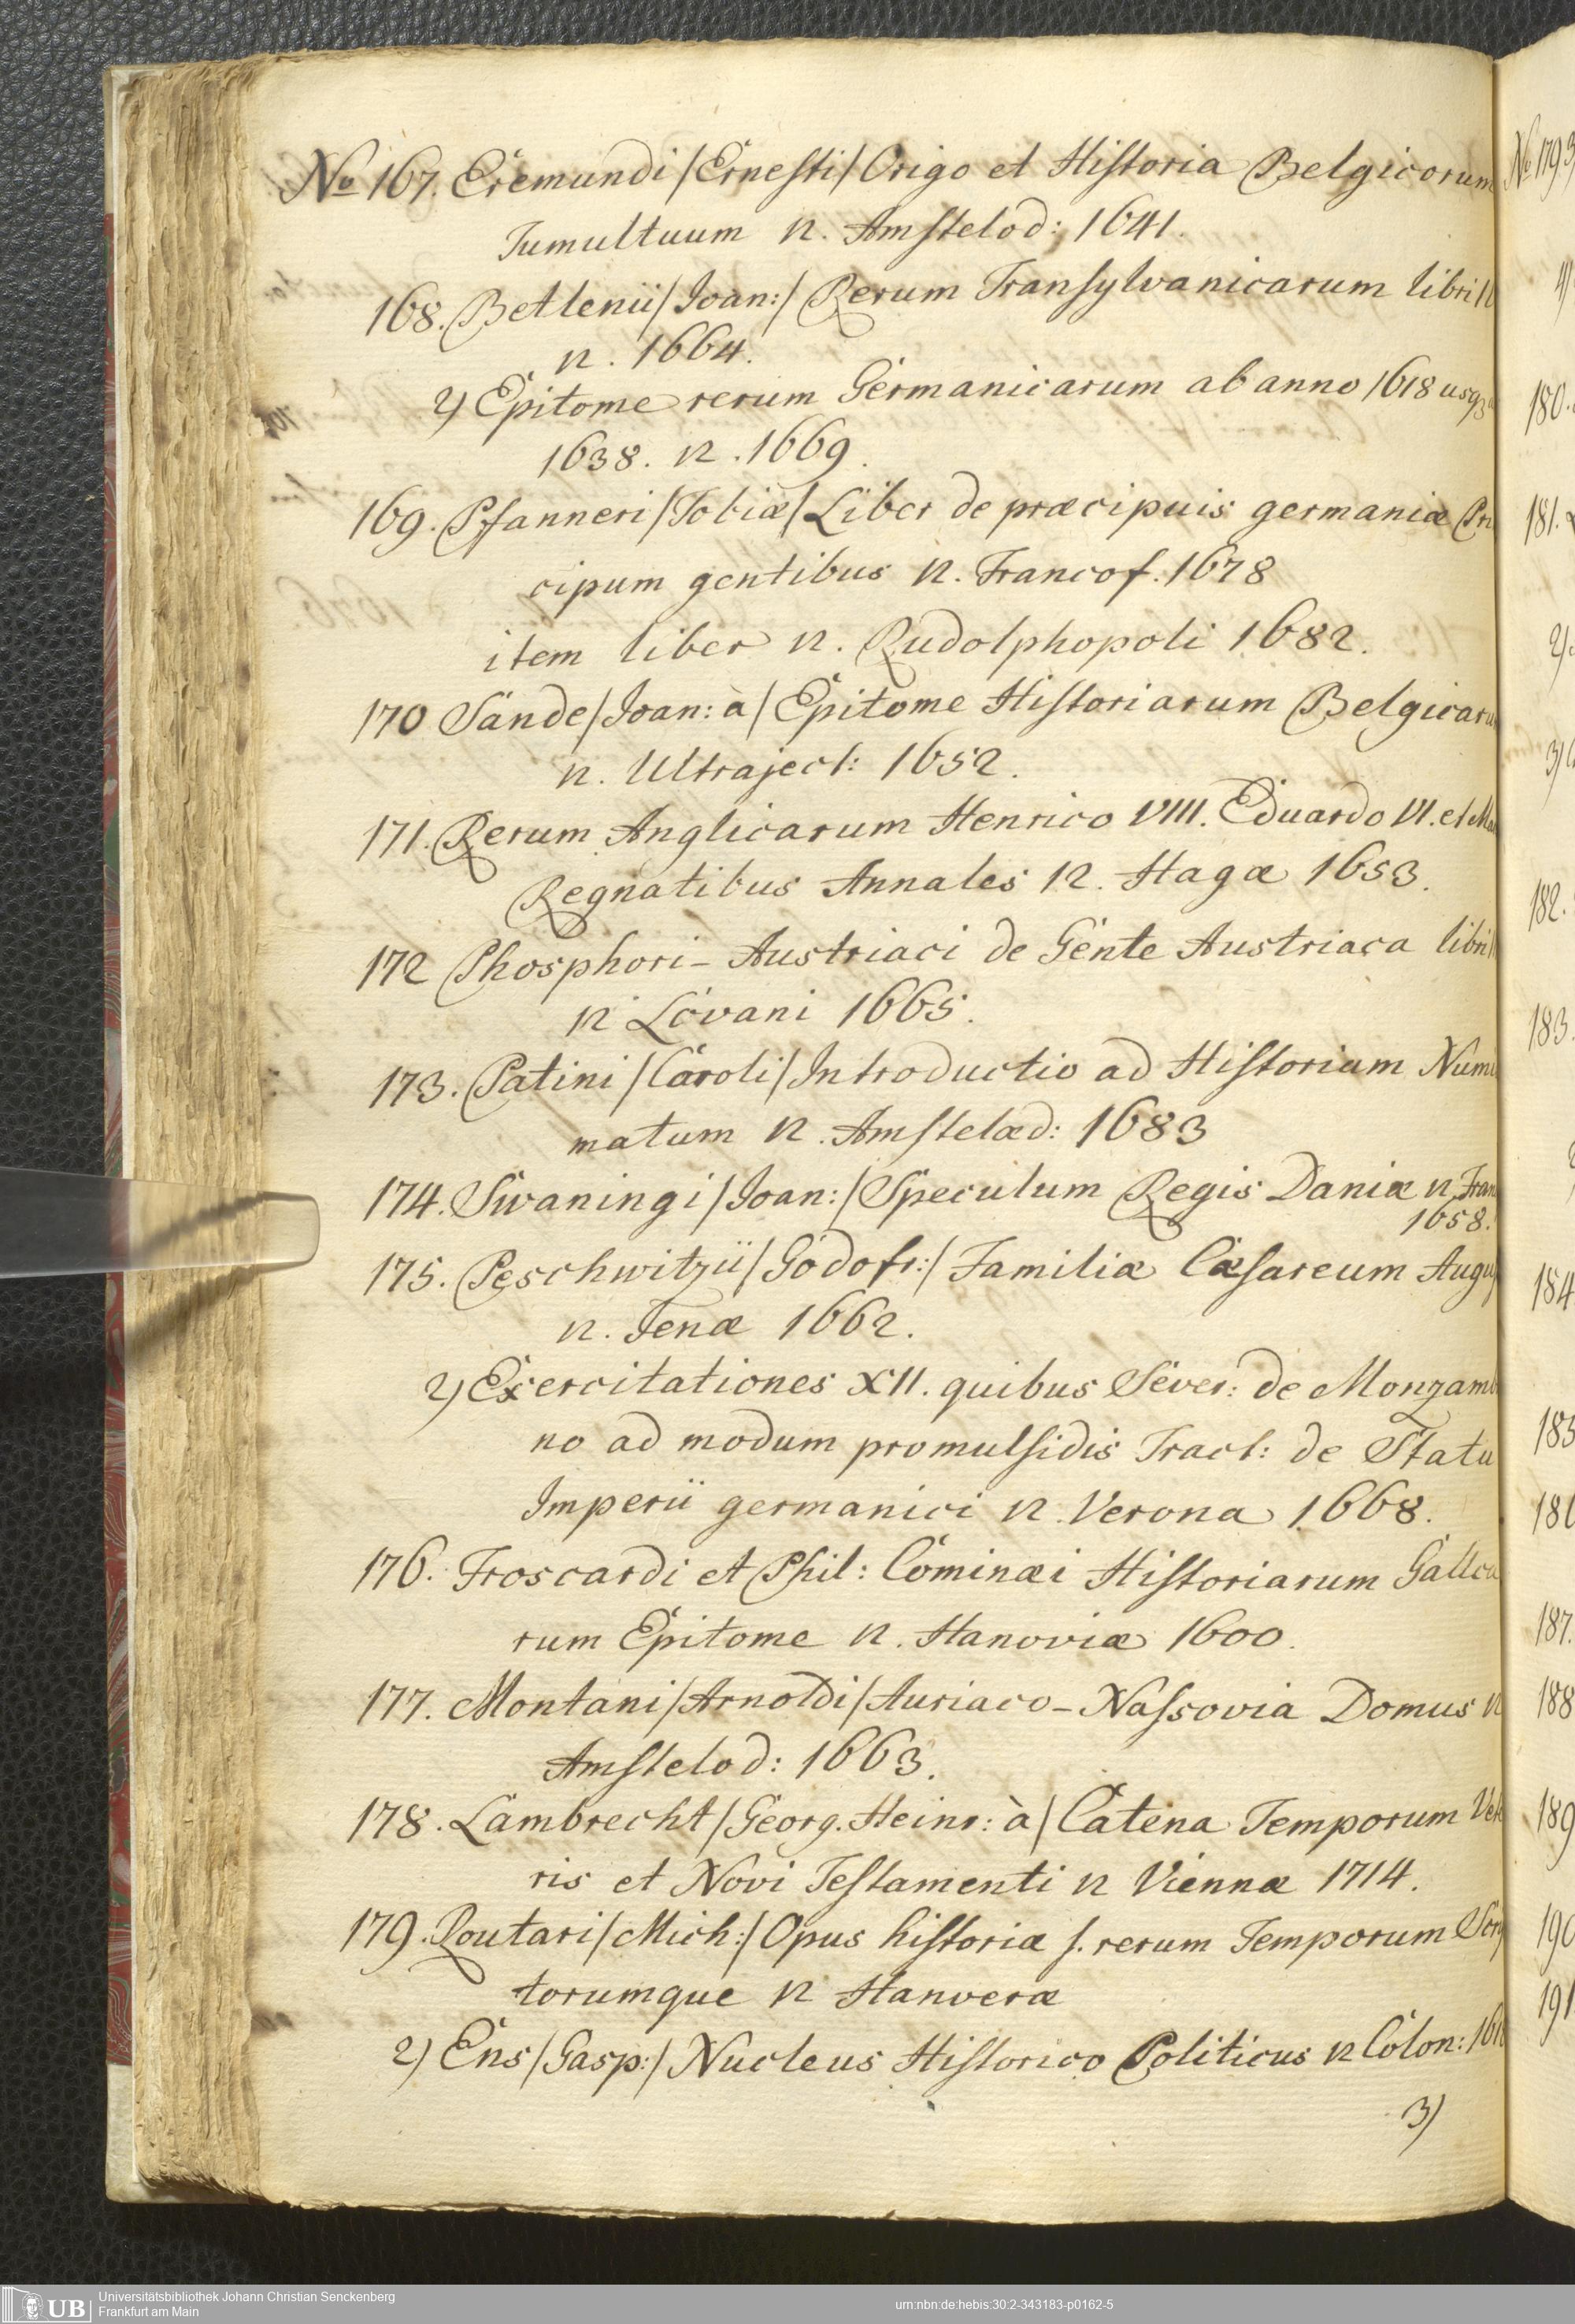 No 167. Eremundi /Ernesti/ Origo et Historia Belgicorum
Tumultuum 12. Amstelod: 1641.
168. Betlenii /Joan:/ Rerum Transylvanicarum libri
12. 1664.
2) Epitome rerum Germanicarum ab anno 1618 usq
1638. 12. 1669.
169. Pfanneri /Tobiæ/ Liber de præcipuis germaniæ Prin
cipum gentibus 12. Francof. 1678
item liber 12. Rudolphopoli 1682.
170 Sande /Joan: à/ Epitome Historiarum Belgicaru
12. Ultraject: 1652.
171. Rerum Anglicarum Henrico VIII. Eduardo VI. et Ma
Regnatibus Annales 12. Hagæ 1653.
172 Phosphori-Austriaci de Gente Austriaca libri
12 Lovani 1665.
173. Patini /Caroli/ Introductio ad Historiam Numis
matum 12. Amstelæd: 1683
174. Swaningi /Joan:/ Speculum Regis Daniæ 12. Fran
1658.
175. Peschwitzii /Godofr:/ Familiæ Cæsareum Augus
12. Jenæ 1662.
2) Exercitationes XII. quibus Sever: de Monzamba
no ad modum promulsidis Tract: de Statu
Imperii germanici 12. Verona 1668.
176. Froscardi et Phil: Cominæi Historiarum Gallca
rum Epitome 12. Hanoviæ 1600.
177. Montani /Arnoldi/ Auriaco-Nassovia Domus 12
Amstelod: 1663.
178. Lambrecht /Georg. Heinr: à/ Catena Temporum Vete
ris et Novi Testamenti 12 Viennæ 1714.
179. Routari /Mich:/ Opus historiæ s. rerum Temporum Scrip
torumque 12 Hanveræ
2) Ens /Gasp:/ Nucleus Historico Politicus 12 Colon:
3)
No 179 3)
180.
181.
2)
3)
182.
183.
184
185
186
187.
188
189
190
191
UB
Universitätsbibliothek Johann Christian Senckenberg
Frankfurt am Main
urn:nbn:de:hebis:30:2-343183-p0162-5